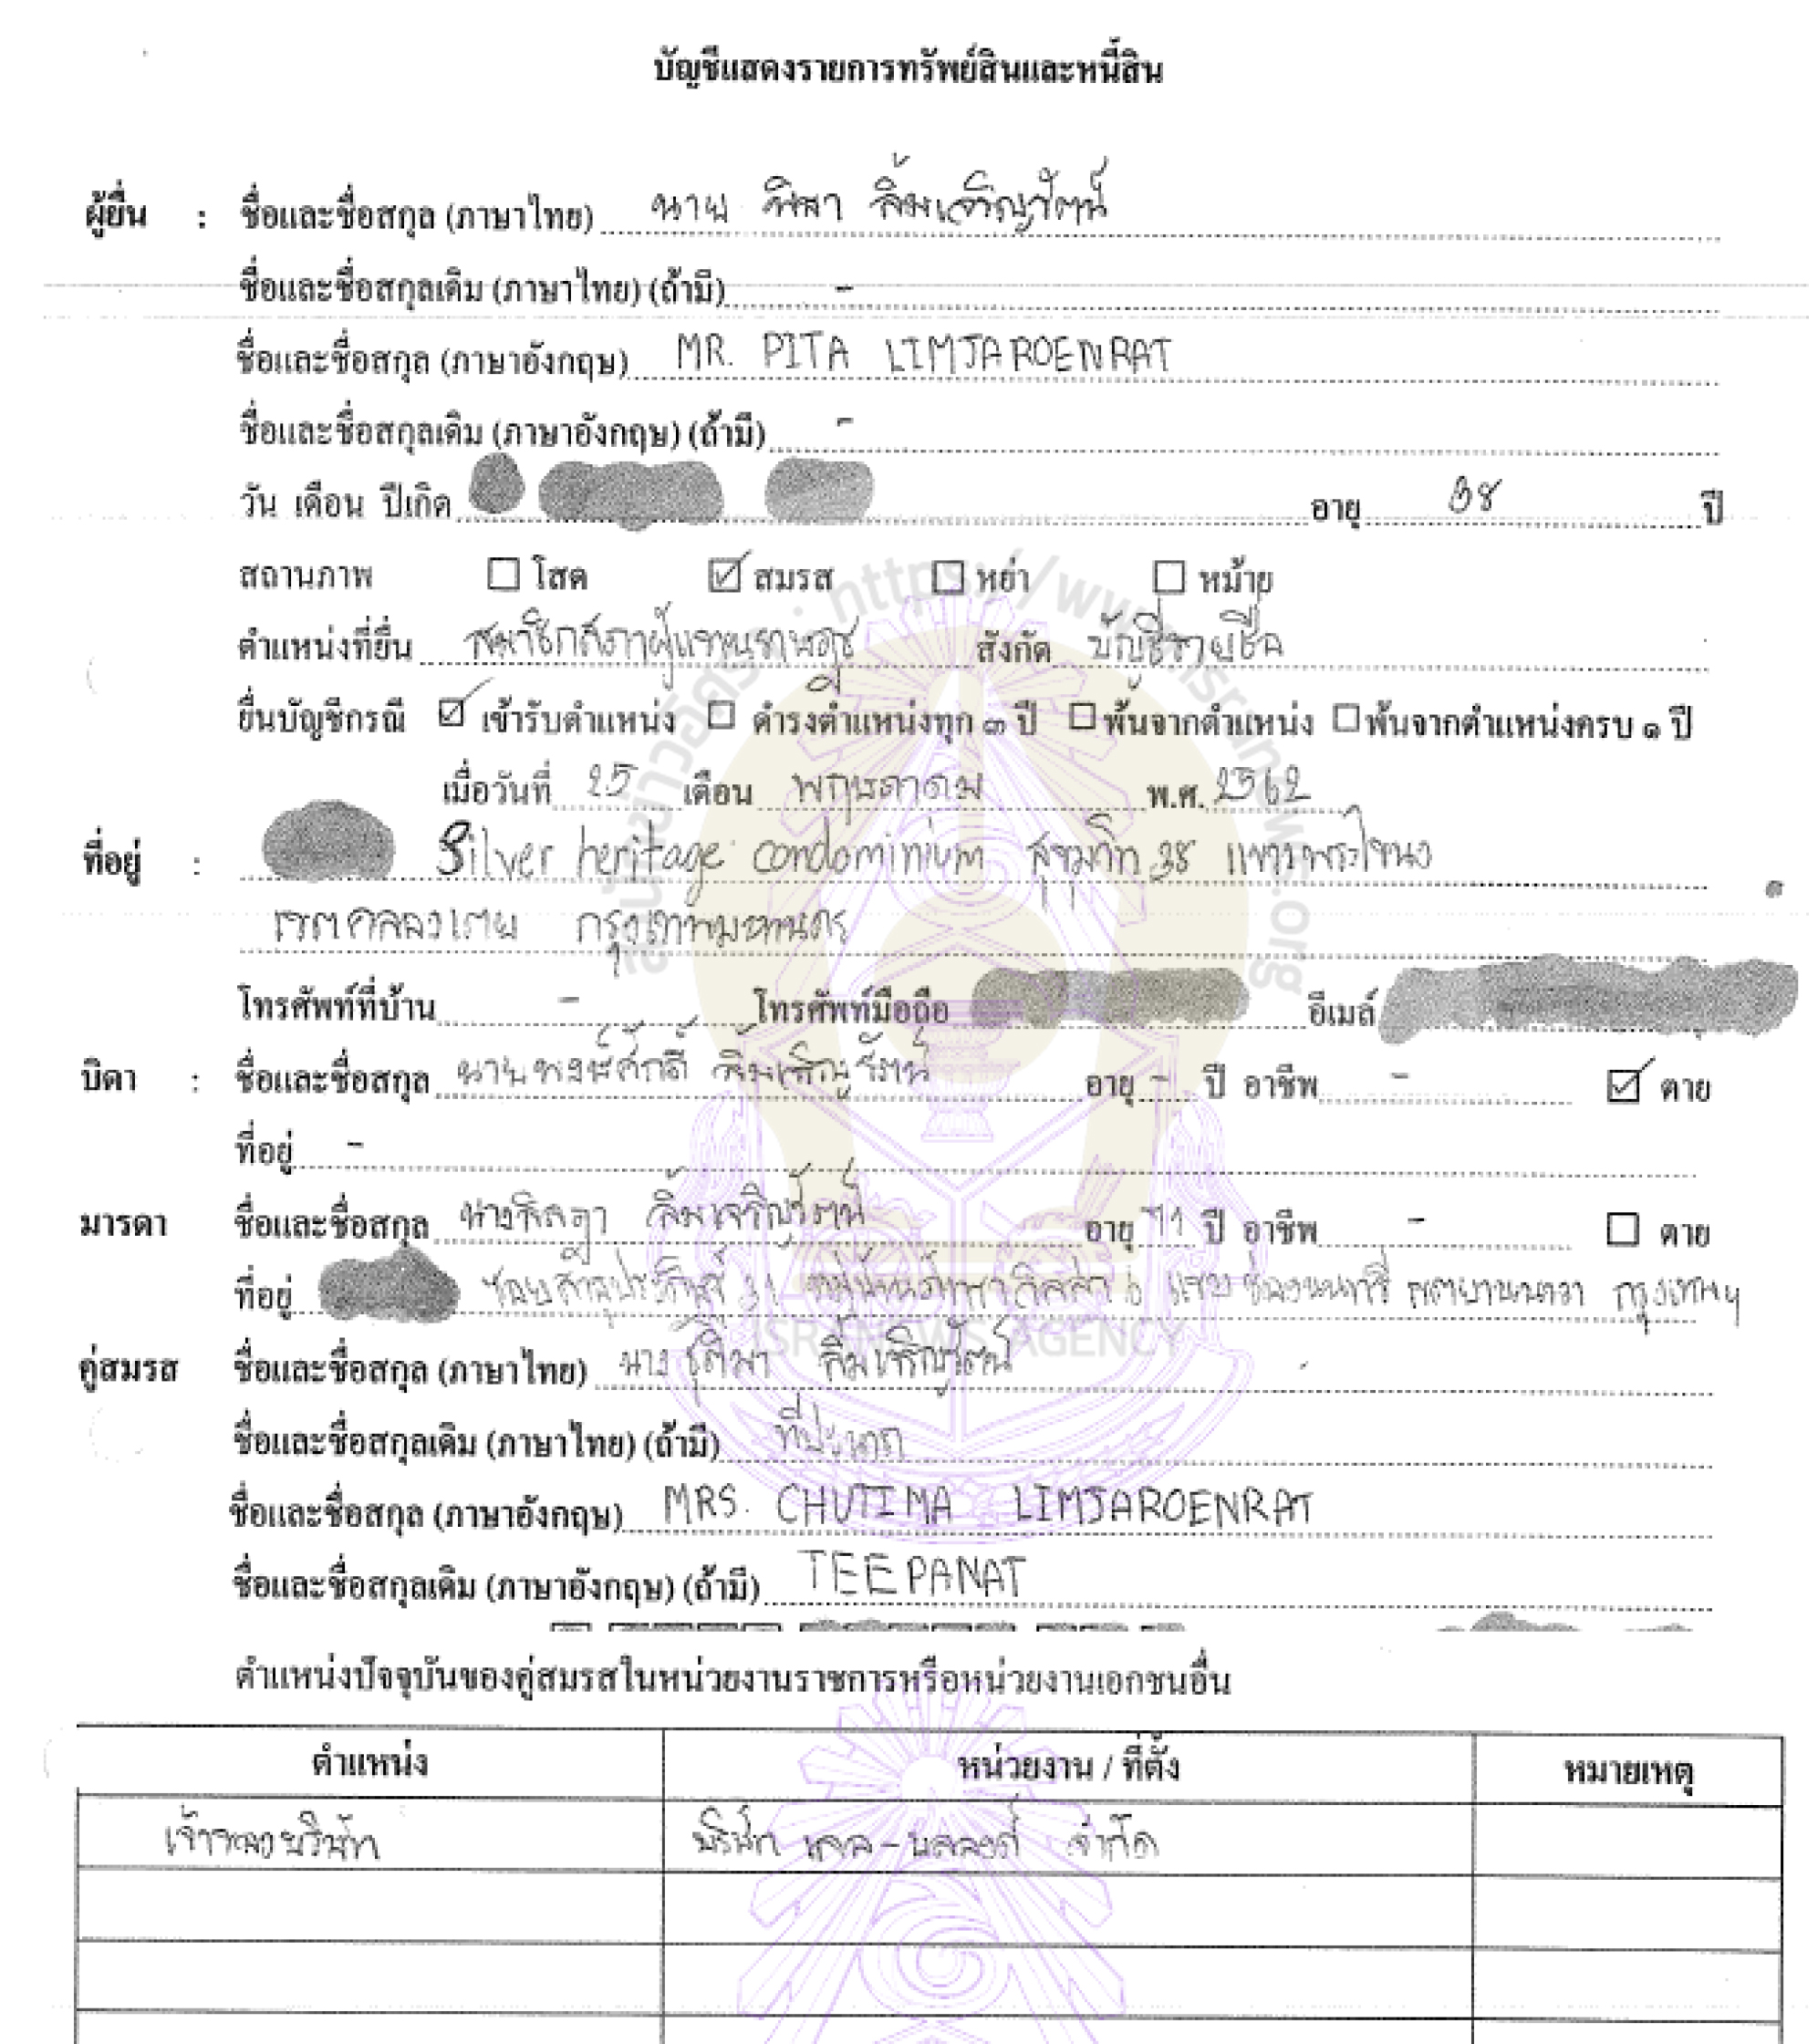 บัญชีแสดงรายการทรัพย์สินและหนี้สิน
ผู้ยื่น : ชื่อและชื่อสกุล (ภาษาไทย) นาย พิธา ลิ้มเจริญรัตน์
ชื่อและชื่อสกุลเดิม (ภาษาไทย) (ถ้ามี) -
ชื่อและชื่อสกุล (ภาษาอังกฤษ) MR. PITA LIMJAROENRAT
ชื่อและชื่อสกุลเดิม (ภาษาอังกฤษ) (ถ้ามี) -
วัน เดือน ปีเกิด อายุ 38 ปี
สถานภาพ โสด สมรส หย่า หม้าย
ตำแหน่งที่ยื่น สมาชิกสภาผู้แทนราษฎร สังกัด บัญชีรายชื่อ
ยื่นบัญชีกรณี เข้ารับตำแหน่ง ดำรงตำแหน่งทุก ๓ ปี พ้นจากตำแหน่ง พ้นจากตำแหน่งครบ ๑ ปี
เมื่อวันที่ 25 เดือน พฤษภาคม พ.ศ. 2562
ที่อยู่ : Silver heritage condominium สุขุมวิท 38 แขวงพระโขนง
เขตคลองเตย กรุงเทพมหานคร
โทรศัพท์ที่บ้าน - โทรศัพท์มือถือ อีเมล์
บิดา : ชื่อและชื่อสกุล นายพงษ์ศักดิ์ ลิ้มเจริญรัตน์ อายุ - ปี อาชีพ - ตาย
ที่อยู่ -
มารดา ชื่อและชื่อสกุล นางลิลฎา ลิ้มเจริญรัตน์ อายุ ปี อาชีพ - ตาย
ที่อยู่ ซอยสาธุประดิษฐ์ 31 แขวงช่องนนทรี เขตยานนาวา กรุงเทพฯ
คู่สมรส ชื่อและชื่อสกุล (ภาษาไทย) นาง ชุติมา ลิ้มเจริญรัตน์
ชื่อและชื่อสกุลเดิม (ภาษาไทย) (ถ้ามี) ทีปะนาถ
ชื่อและชื่อสกุล (ภาษาอังกฤษ) MRS. CHUTIMA LIMJAROENRAT
ชื่อและชื่อสกุลเดิม (ภาษาอังกฤษ) (ถ้ามี) TEEPANAT
ตำแหน่งปัจจุบันของคู่สมรสในหน่วยงานราชการหรือหน่วยงานเอกชนอื่น
ตำแหน่ง หน่วยงาน / ที่ตั้ง หมายเหตุ
เจ้าของบริษัท บริษัท จำกัด
สำนักข่าวอิศรา : https://www.isranews.org
ISRANEWS AGENCY